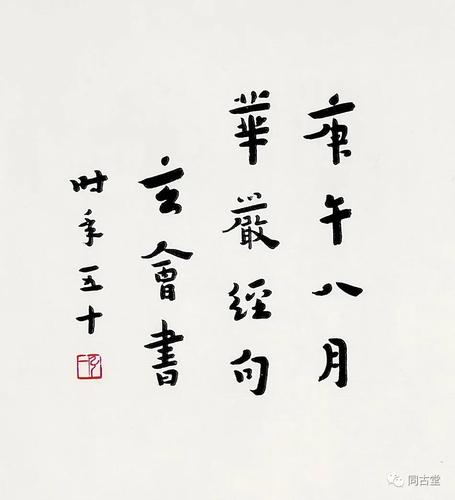 庚午八月
華嚴經句
玄會書
时年五十
同古堂